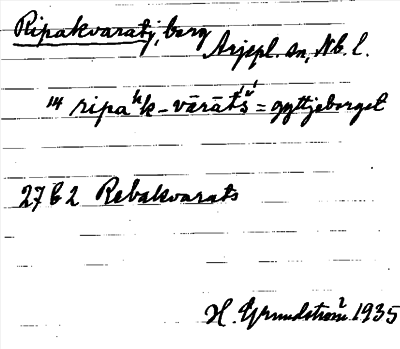 Ripakvaratj, berg
Arjepl. sn, Nb. l.
14 ripaʰk-vārāt́ś = gyttjeberget
27 b 2 Rebakvarats
H. Grundström 1935